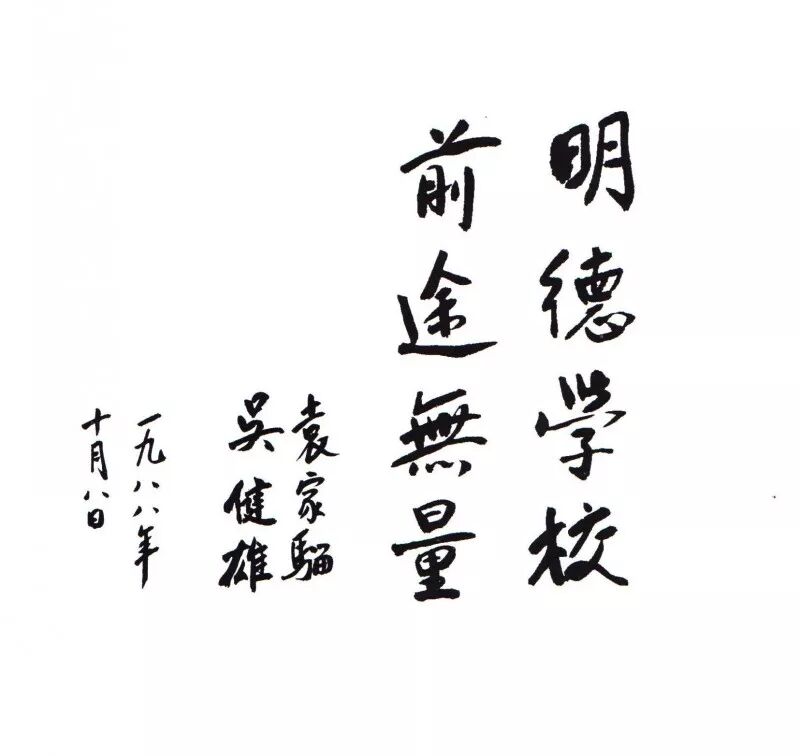 明德学校
前途無量
袁家騮
吳健雄
一九八八年
十月八日